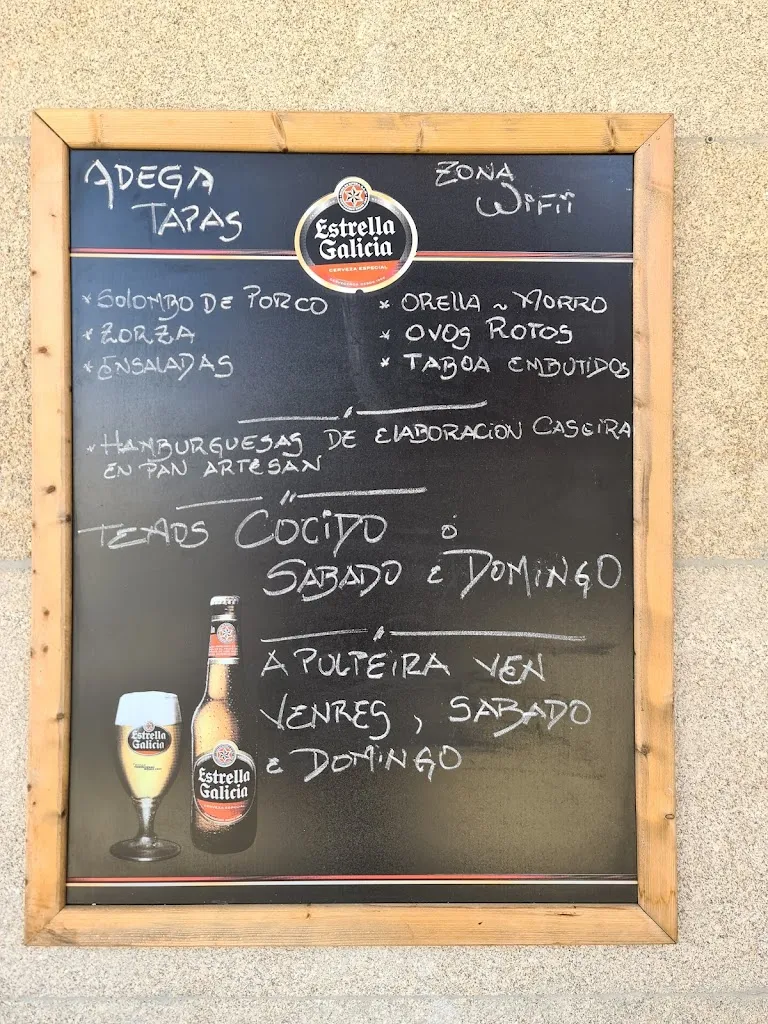 ADEGA
TAPAS
ZONA
WiFii
Estrella
Galicia
CERVEZA ESPECIAL
* SOLOMBO DE PORCO
* ZORZA
* ENSALADAS
* ORELLA ~ MORRO
* OVOS ROTOS
* TABOA EMBUTIDOS
* HAMBURGUESAS DE ELABORACION CASEIRA
EN PAN ARTESAN
TEMOS COCIDO Ó
SABADO E DOMINGO
A PULPEIRA VEN
VENRES, SABADO
E DOMINGO
Estrella
Galicia
Estrella
Galicia
CERVEZA ESPECIAL